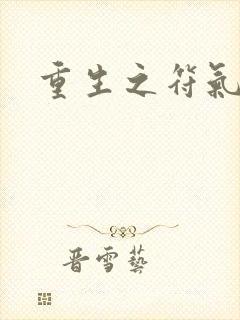 重生之符氣
晋雪藝